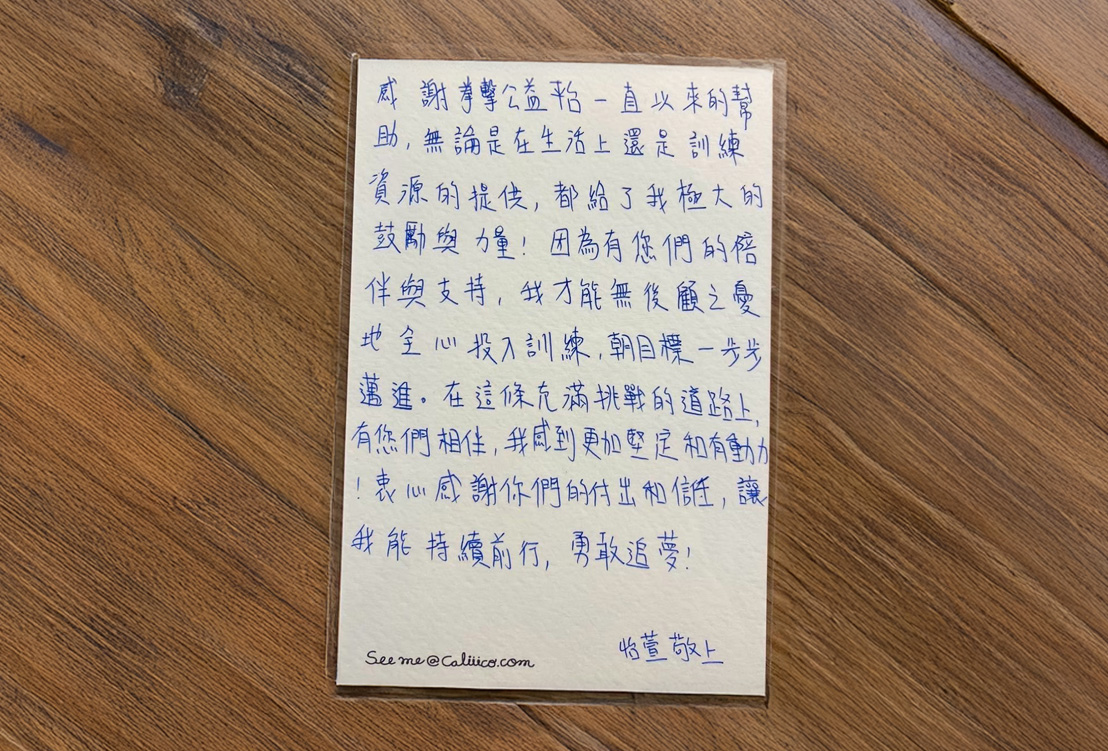 感謝拳擊公益平台一直以來的幫
助,無論是在生活上還是訓練
資源的提供,都給了我極大的
鼓勵與力量!因為有您們的陪
伴與支持,我才能無後顧之憂
地全心投入訓練,朝目標一步步
邁進。在這條充滿挑戰的道路上,
有您們相伴,我感到更加堅定和有動力
!衷心感謝你們的付出和信任,讓
我能持續前行,勇敢追夢!
怡萱敬上
See me@Caliiico.com